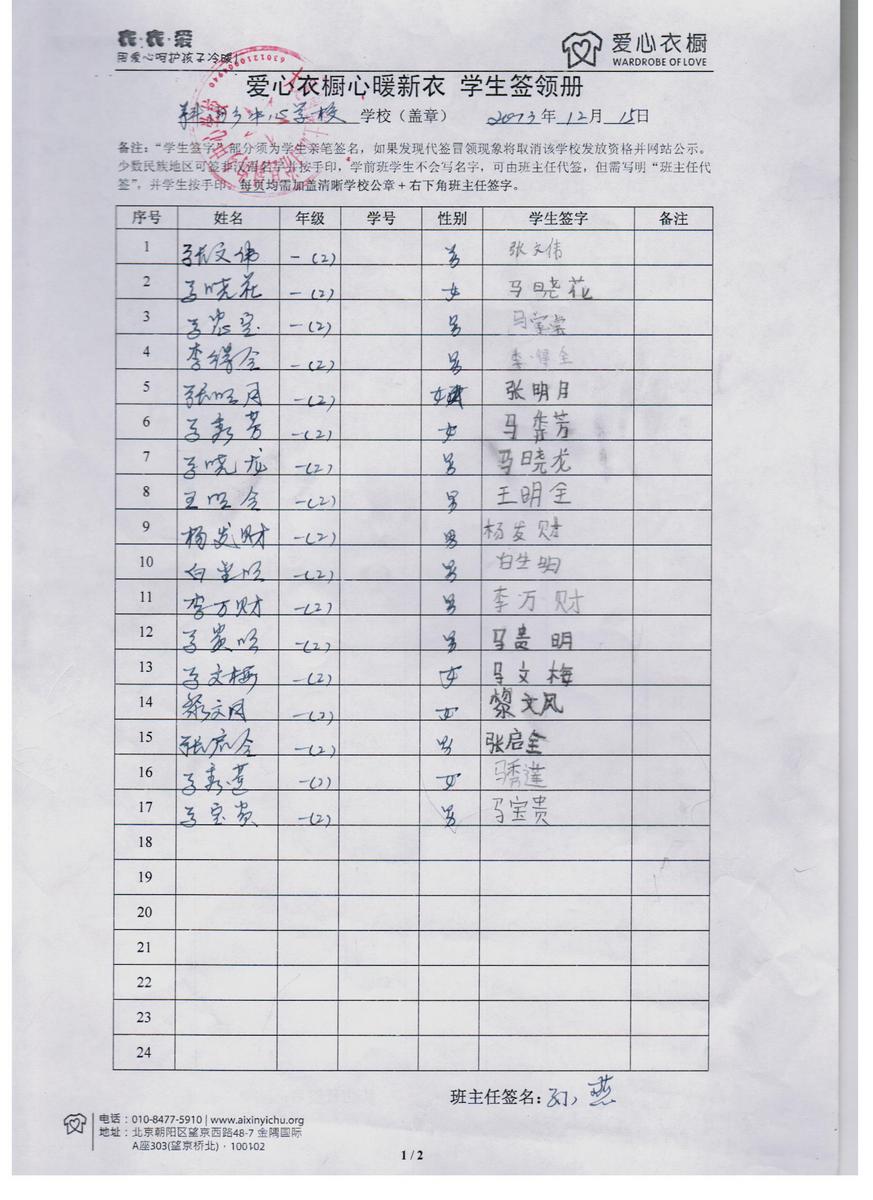 衣·衣·爱
用爱心呵护孩子冷暖!
爱心衣橱
WARDROBE OF LOVE
爱心衣橱心暖新衣 学生签领册
中心学校 学校（盖章） 2013年 12月 15日
备注：“学生签字”部分须为学生亲笔签名，如果发现代签冒领现象将取消该学校发放资格并网站公示。
少数民族地区可签非汉语名字并按手印，学前班学生不会写名字，可由班主任代签，但需写明“班主任代
签”，并学生按手印。每页均需加盖清晰学校公章+右下角班主任签字。
序号 姓名 年级 学号 性别 学生签字 备注
1 张文伟 一(2) 男 张文伟
2 马晓花 一(2) 女 马晓花
3 马忠宝 一(2) 男
4 李得全 一(2) 男 李得全
5 张明月 一(2) 女 张明月
6 马秀芳 一(2) 女 马秀芳
7 马晓龙 一(2) 男 马晓龙
8 王明全 一(2) 男 王明全
9 杨发财 一(2) 男 杨发财
10 白生明 一(2) 男 白生明
11 李万财 一(2) 男 李万财
12 马贵明 一(2) 男 马贵明
13 马文梅 一(2) 女 马文梅
14 一(2) 女 黎文风
15 张启全 一(2) 男 张启全
16 马秀莲 一(2) 女 马秀莲
17 马宝贵 一(2) 男 马宝贵
18
19
20
21
22
23
24
班主任签名：
电话：010-8477-5910 | www.aixinyichu.org
地址：北京朝阳区望京西路48-7 金隅国际
A座303(望京桥北)·100102
1 / 2